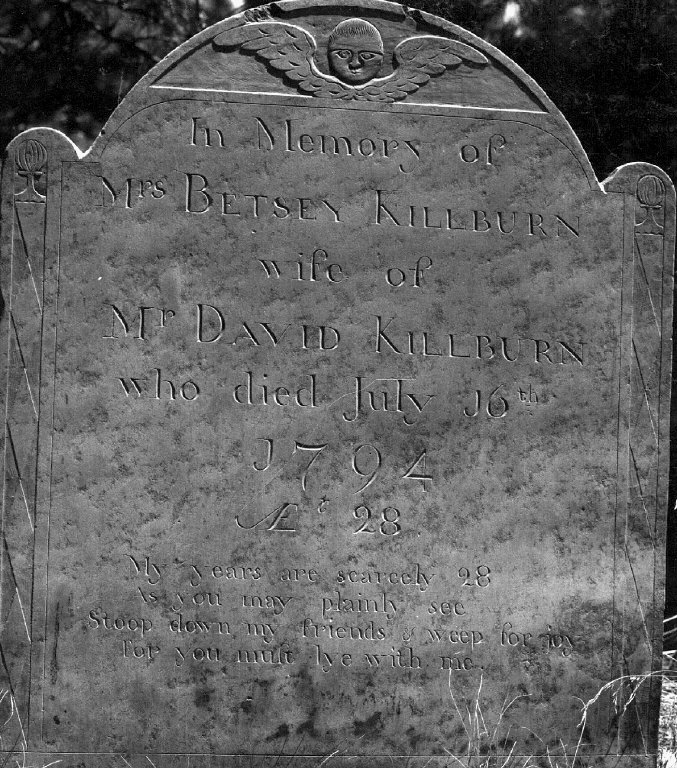 In Memory of
Mrs BETSEY KILLBURN
wife of
Mr DAVID KILLBURN
who died July 16th
1794
Æt 28.
My years are scarcely 28
As you may plainly see
Stoop down my friends & weep for joy
For you muſt lye with me.